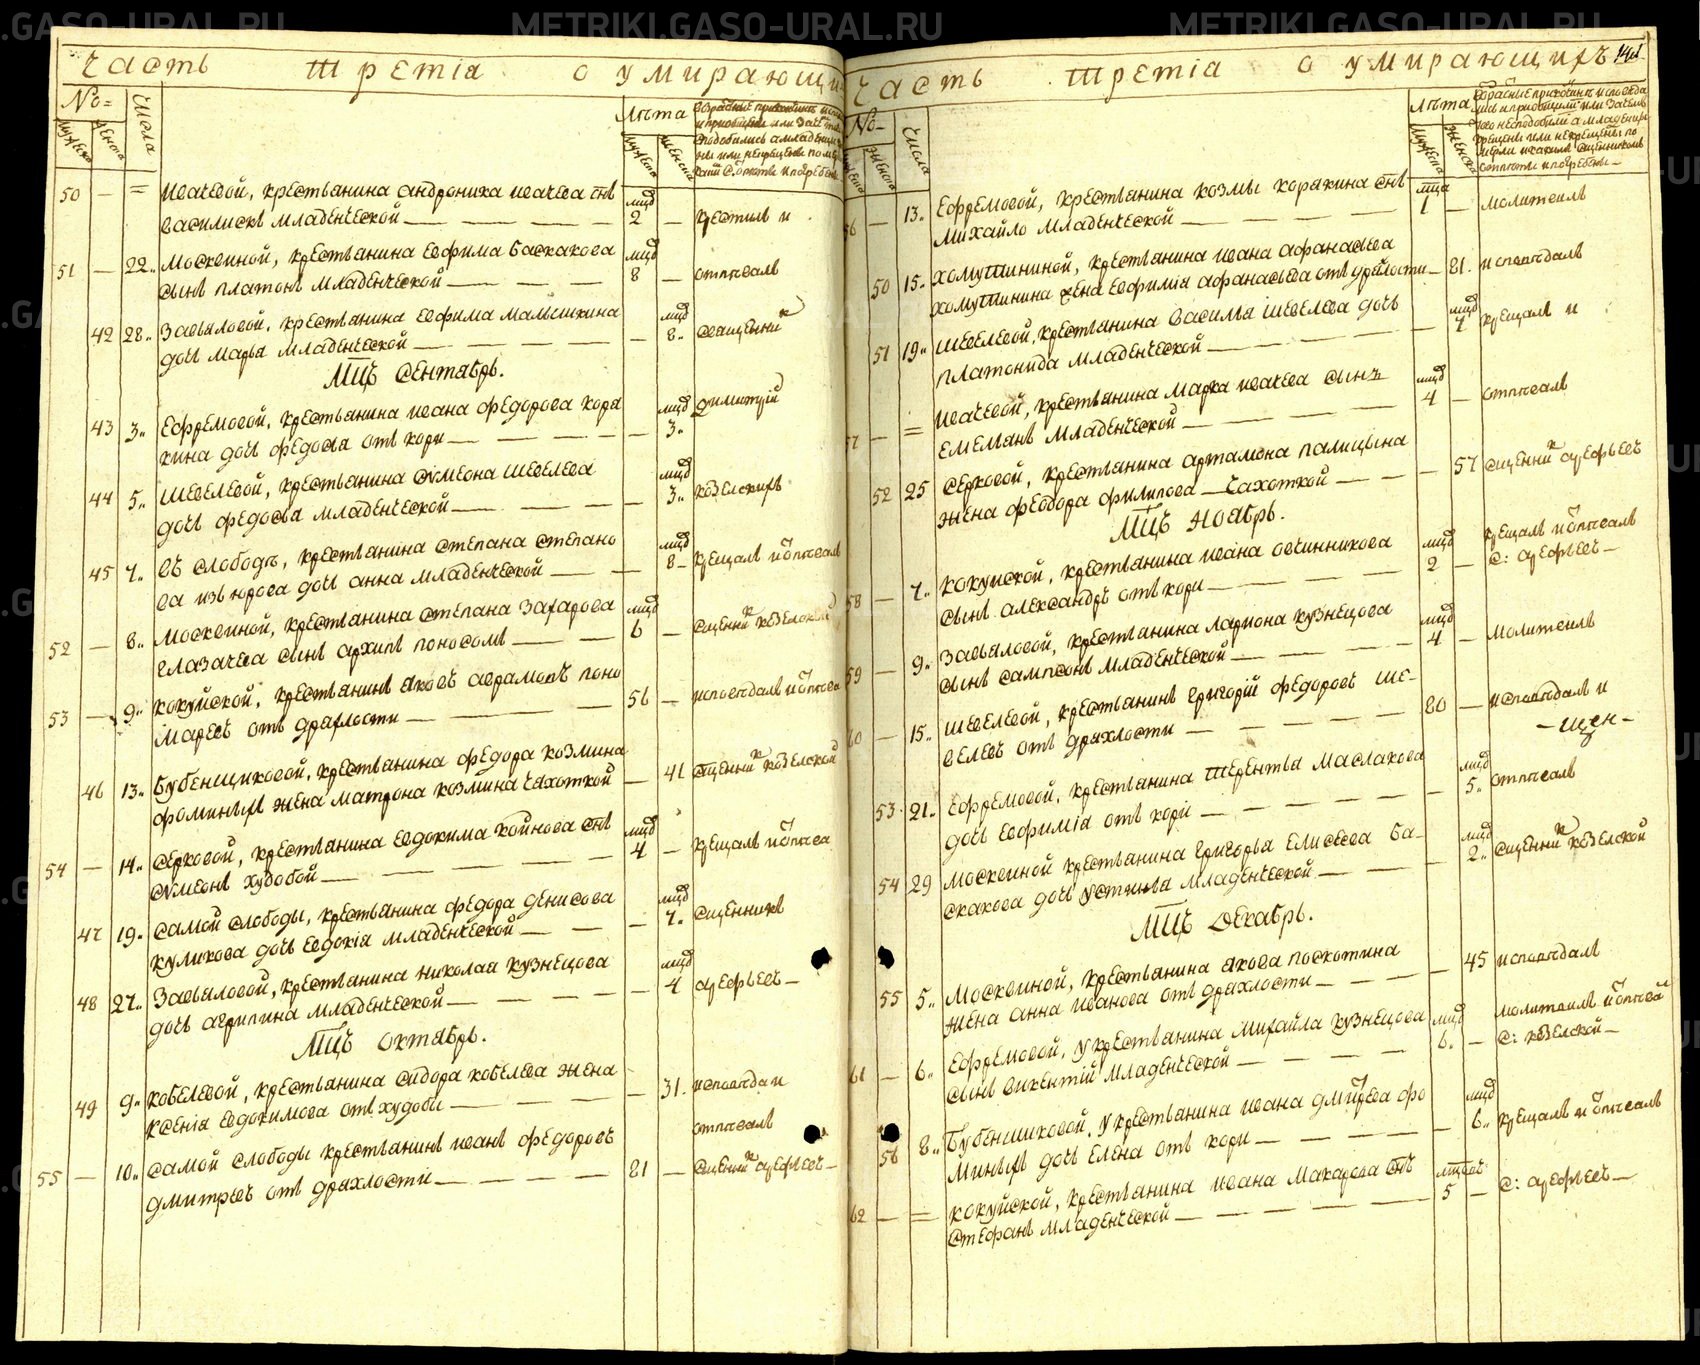 METRIKI.GASO-URAL.RU
METRIKI.GASO-URAL.RU
Часть третiа о умирающи
№
Мужеска
Женска
Числа
Лѣта
Мужеска
Женска
50 — = Ивачевой, крестьянина андроника ивачева снъ
василискъ младенческой — мцъ 2 — крестилъ и
51 — 22. Москвиной, крестьянина ефима баскакова
сынъ платонъ младенческой — мцъ 8 — отпѣвалъ
42 28. Завьяловой, крестьянина ефима малышкина
дочь марья младенческой — мцъ 8. священник
Мцъ сентябрь.
43 3. Ефремовой, крестьянина ивана федорова коря
кина дочь федосья отъ кори — мцъ 3. димитрiй
44 5. Шевелевой, крестьянина сѵмеона шевелева
дочь федосья младенческой — мцъ 3. козелскихъ
45 7. въ слободѣ, крестьянина степана степано
ва изъюрова дочь анна младенческой — мцъ 8 — крещалъ и отпѣвалъ
52 — 8. Москвиной, крестьянина степана захарова
глазачева сынъ архипъ поносомъ — мцъ 6 — сщенник козелской
53 — 9. кокуйской, крестьянинъ яковъ аврамовъ поно
маревъ отъ дряхлости — 56 — исповѣдалъ и отпѣва
46 13. Бубенщиковой, крестьянина федора козмина
фоминыхъ жена матрона козмина чахоткой — 41 сщенник козелской
54 — 14. серковой, крестьянина евдокима койнова снъ
сѵмеонъ худобой — мцъ 4 — крещалъ и отпѣва
47 19. самой слободы, крестьянина федора денисова
куликова дочь евдокiя младенческой — мцъ 7. сщенникъ
48 27. Завьяловой, крестьянина николая кузнецова
дочь агрипина младенческой — мцъ 4 арефьевъ —
Мцъ октябрь.
49 9. ковелевой, крестьянина сидора ковелева жена
ксенiя евдокимова отъ худобы — 31. исповѣда и
отпѣвалъ
55 — 10. самой слободы крестьянинъ иванъ федоровъ
дмитревъ отъ дряхлости — 81 — сщенник арефьевъ —
Часть третiа о умирающихъ 141
№
Женска
Числа
Лѣта
Мужеска
Женска
56 — 13. Ефремовой, крестьянина козмы корякина снъ
михайло младенческой — мца 1 — молитвилъ
50 15. хомутининой, крестьянина ивана афанасьева
хомутинина жена евфимiя афанасьева отъ дряхлости — 81. исповѣдалъ
51 19. шевелевой, крестьянина василья шевелева дочь
платонида младенческой — мцъ 7 крещалъ и
57 — = ивачевой, крестьянина марка ивачева сынъ
емельянъ младенческой — мцъ 4 — отпѣвалъ
52 25 серковой, крестьянина артамона палицына
жена феодора филипова — чахоткой — 57 сщенник арефьевъ
Мцъ ноябрь.
58 — 7. кокуйской, крестьянина ивана овчинникова
сынъ александръ отъ кори — мцъ 2 — крещалъ и отпѣвалъ
с: арефьевъ —
59 — 9. Завьяловой, крестьянина лариона кузнецова
сынъ сампсонъ младенческой — мцъ 4 — молитвилъ
60 — 15. шевелевой, крестьянинъ григорiй федоровъ ше-
велевъ отъ дряхлости — 80 — исповѣдалъ и
— щен —
53. 21. Ефремовой, крестьянина терентья маслакова
дочь евфимiа отъ корi — мцъ 5. отпѣвалъ
54 29 москвиной крестьянина григорья елисеева ба-
скакова дочь устинья младенческой — мцъ 2. сщенник козелской
Мцъ декабрь.
55 5. Москвиной, крестьянина якова поскотина
жена анна иванова отъ дряхлости — 45 исповѣдалъ
61 — 6. Ефремовой, у крестьянина михайла кузнецова
сынъ викентiй младенческой — мцъ 6. — молитвилъ и отпѣвал
с: козелской —
56 8. Бубенщиковой, у крестьянина ивана дмитрева фо
миныхъ дочь елена отъ кори — мцъ 6. крещалъ и отпѣвалъ
62 — = кокуйской, крестьянина ивана макарова снъ
стефанъ младенческой — 5 — с: арефьевъ —